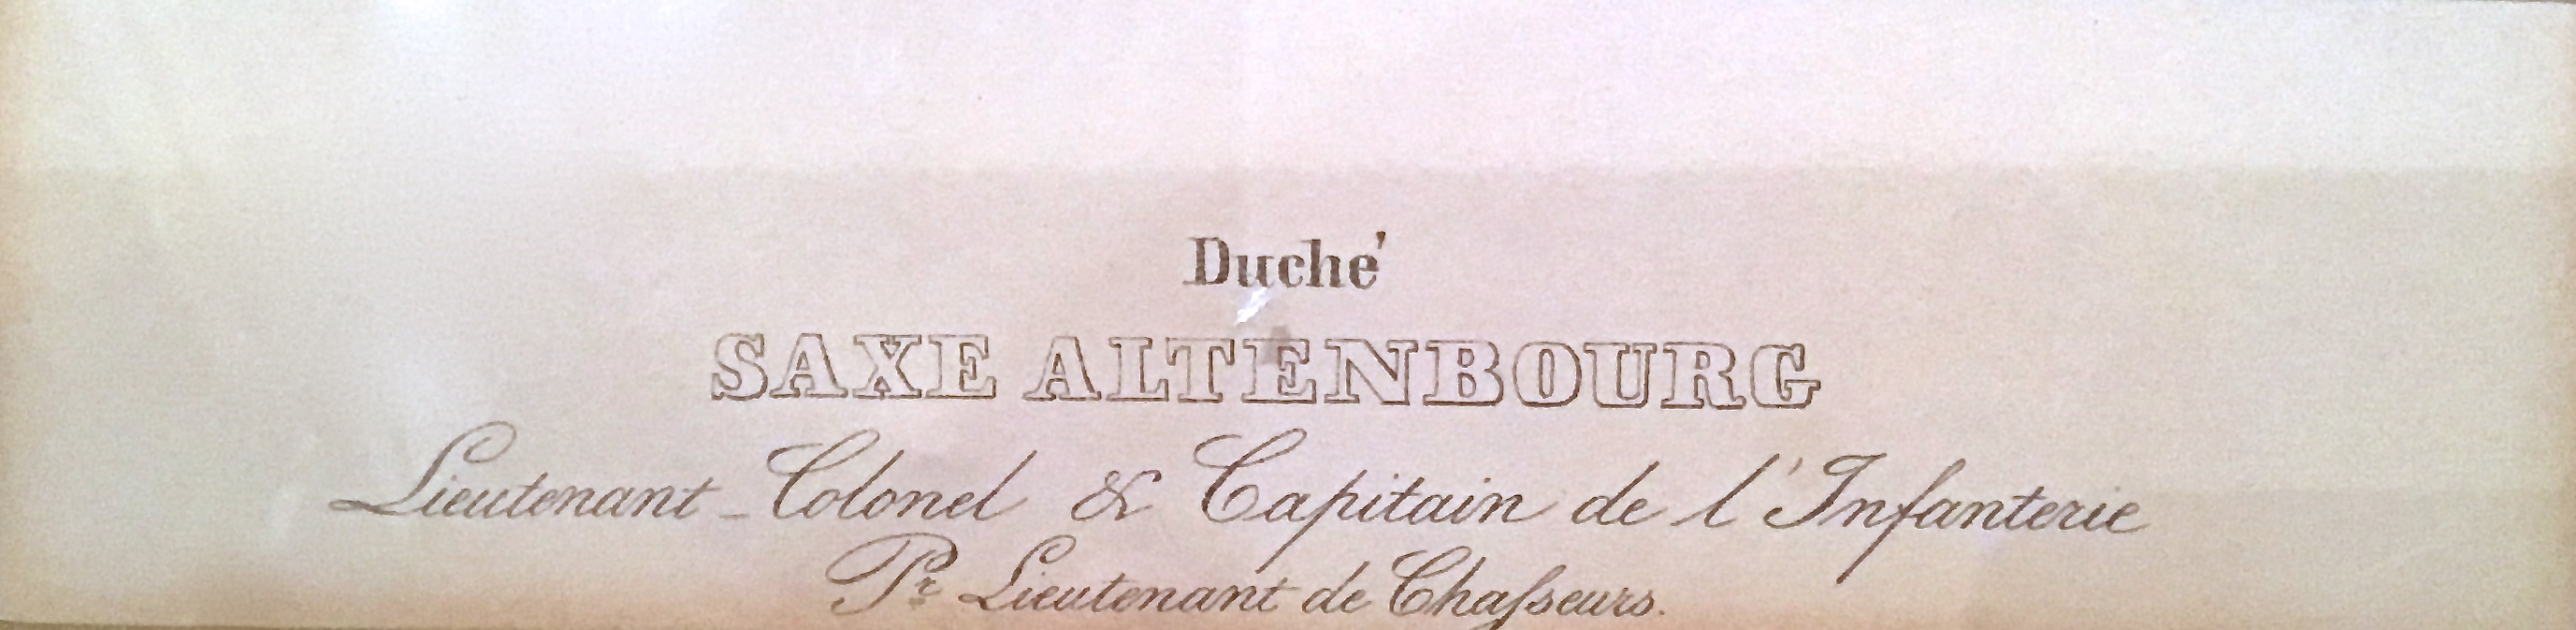 Duché
SAXE ALTENBOURG
Lieutenant-Colonel & Capitain de l'Infanterie
Pr Lieutenant de Chaſseurs.